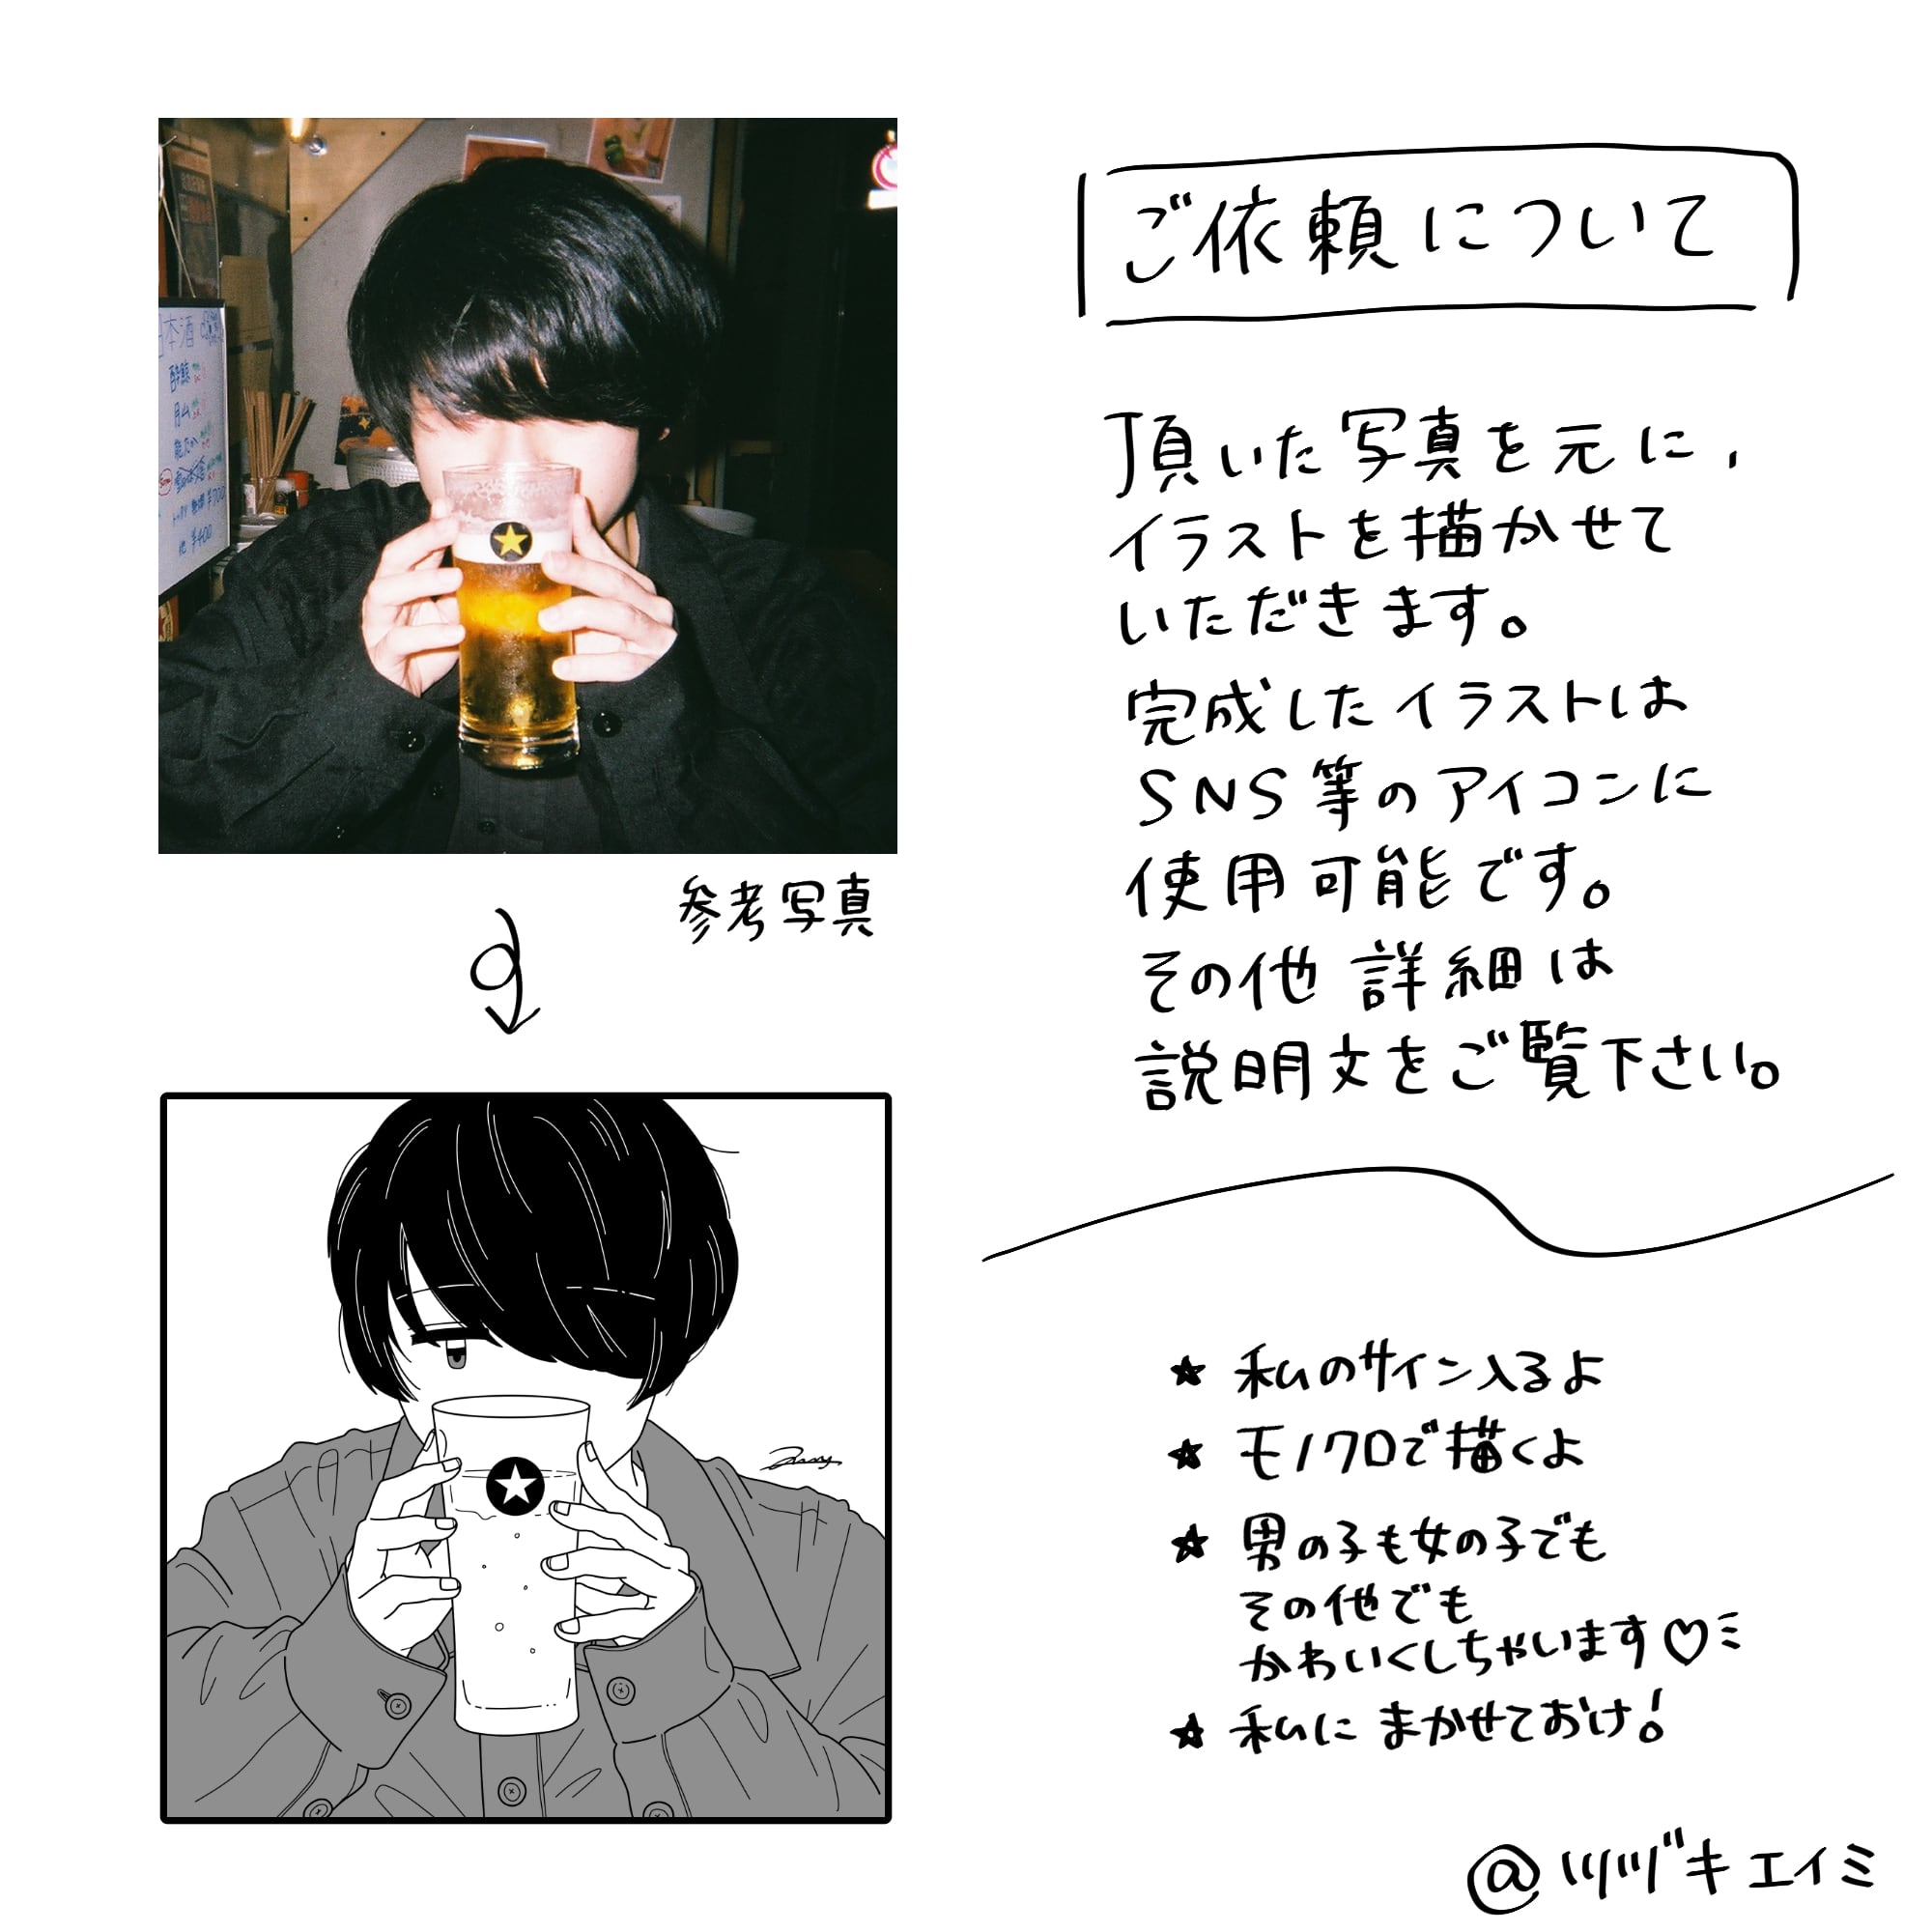 ご依頼について
頂いた写真を元に、
イラストを描かせて
いただきます。
完成したイラストは
SNS等のアイコンに
使用可能です。
その他 詳細は
説明文をご覧下さい。
参考写真
★ 私のサイン入るよ
★ モノクロで描くよ
★ 男の子も女の子でも
その他でも
かわいくしちゃいます♡
★ 私にまかせておけ!
@ツヅキエイミ
日本酒
酔鯨
月山
¥700
他 ¥400